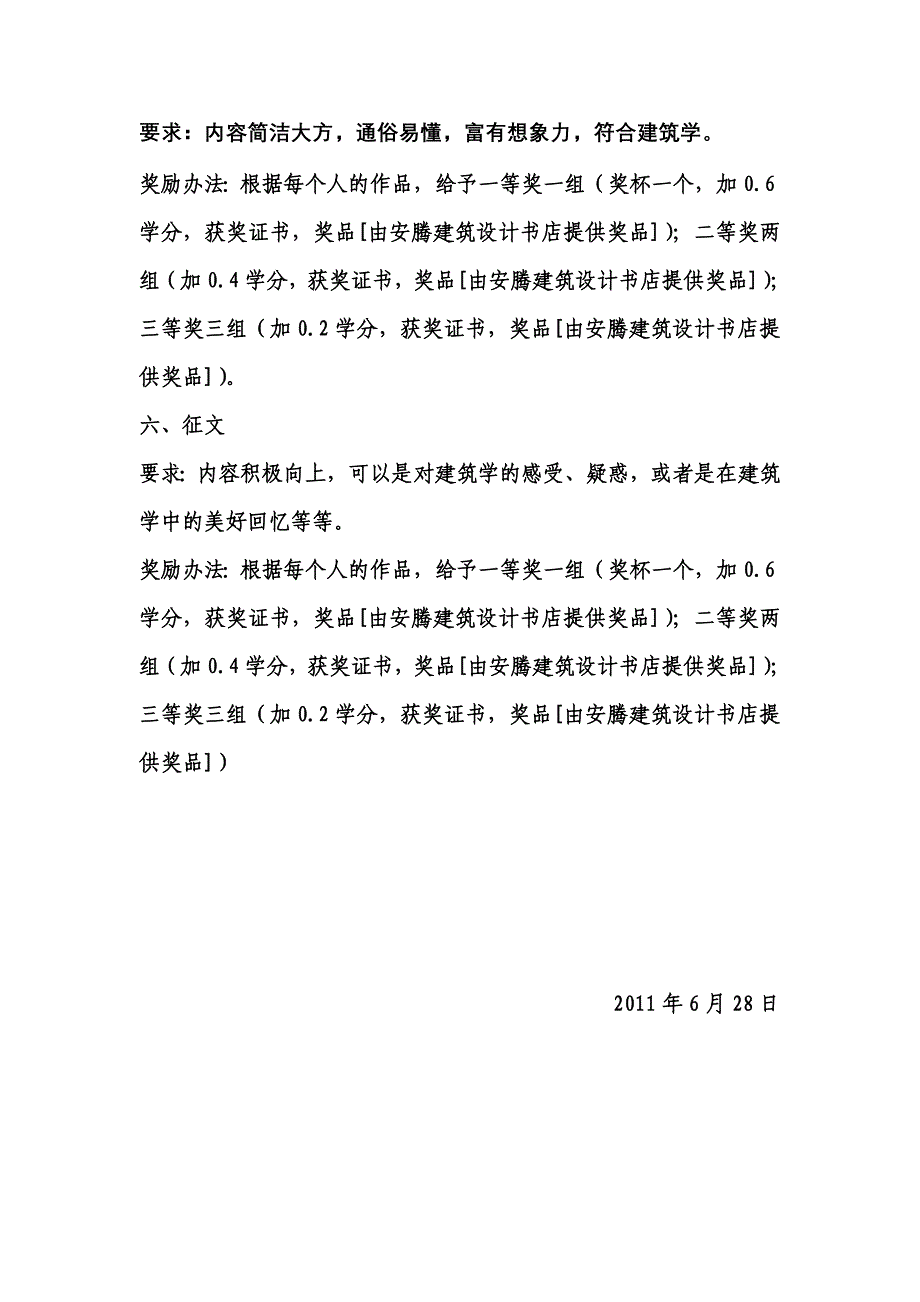 要求：内容简洁大方，通俗易懂，富有想象力，符合建筑学。
奖励办法：根据每个人的作品，给予一等奖一组（奖杯一个，加0.6
学分，获奖证书，奖品[由安腾建筑设计书店提供奖品]）；二等奖两
组（加0.4学分，获奖证书，奖品[由安腾建筑设计书店提供奖品]）；
三等奖三组（加0.2学分，获奖证书，奖品[由安腾建筑设计书店提
供奖品]）。
六、征文
要求：内容积极向上，可以是对建筑学的感受、疑惑，或者是在建筑
学中的美好回忆等等。
奖励办法：根据每个人的作品，给予一等奖一组（奖杯一个，加0.6
学分，获奖证书，奖品[由安腾建筑设计书店提供奖品]）；二等奖两
组（加0.4学分，获奖证书，奖品[由安腾建筑设计书店提供奖品]）；
三等奖三组（加0.2学分，获奖证书，奖品[由安腾建筑设计书店提
供奖品]）
2011年6月28日